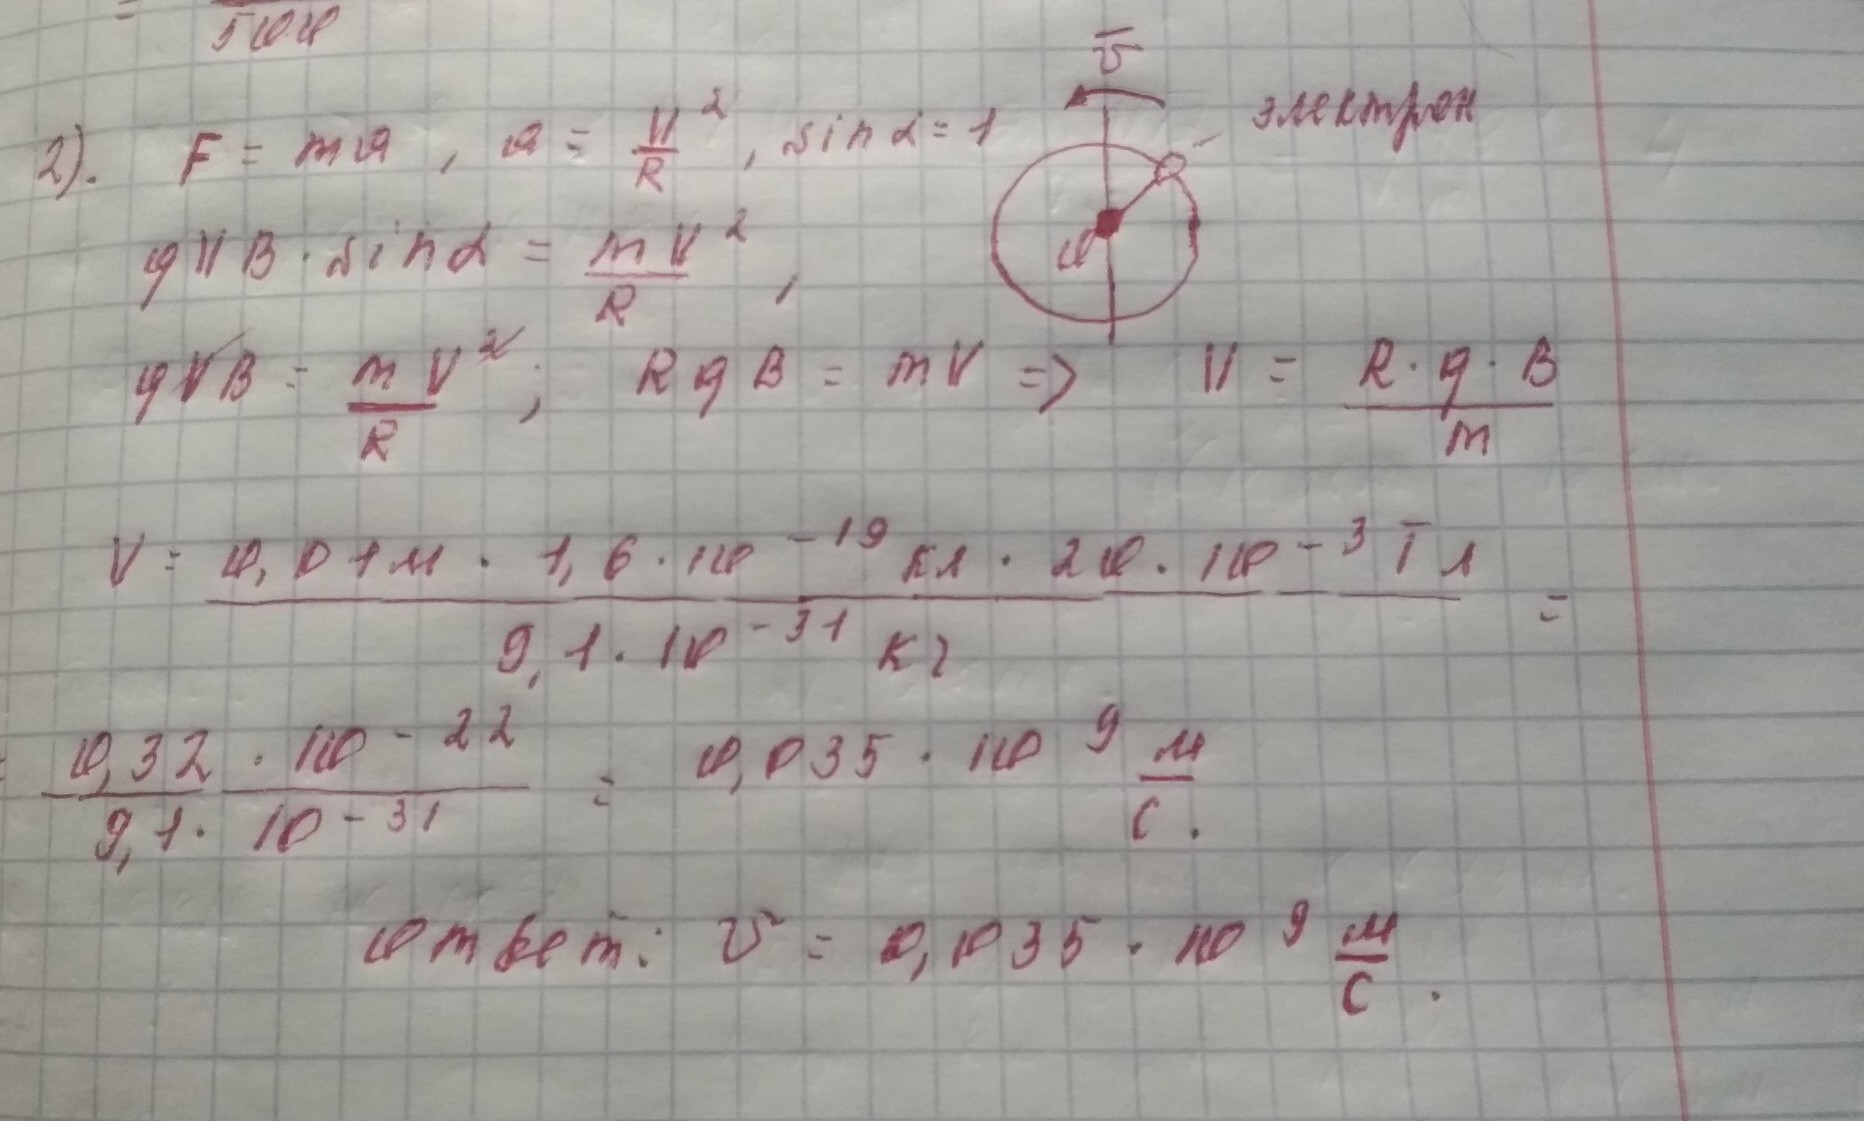 = 500
v̅
электрон
2). F = ma, a = V²/R, sin α = 1
qVB · sin α = mV²/R,
O
qVB = mV²/R; RqB = mV => V = R · q · B/m
V = 0,01м · 1,6 · 10⁻¹⁹ Кл · 20 · 10⁻³ Тл / 9,1 · 10⁻³¹ кг =
= 0,32 · 10⁻²² / 9,1 · 10⁻³¹ = 0,035 · 10⁹ м/с.
Ответ: v = 0,035 · 10⁹ м/с.